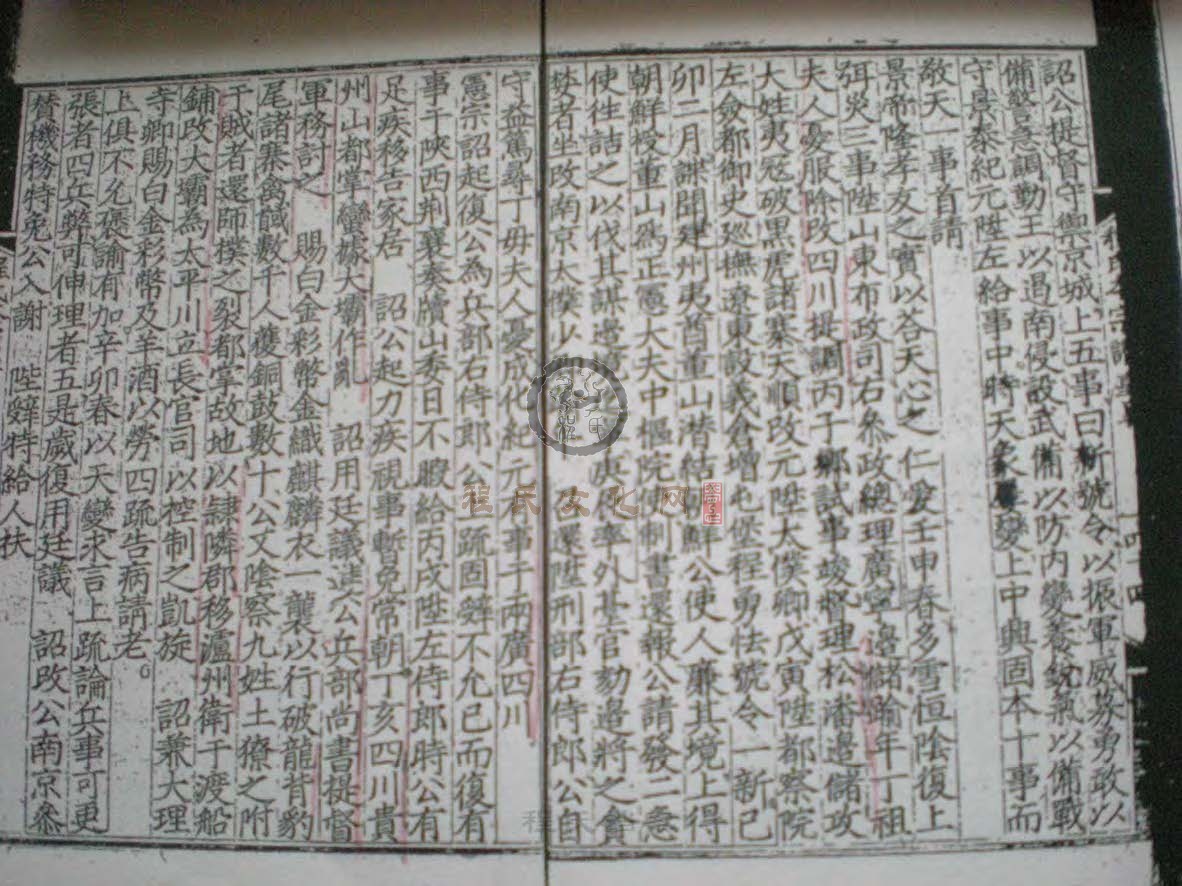 詔公提督守禦京城上五事曰新號令以振軍威募勇敢以
備警急調勤王以遏南侵敕武備以防內變養銳氣以備戰
守景泰紀元陞左給事中時天象變上中興固本十事而
敬天一事首請
景帝隆孝友之實以答天心之仁愛壬申春多雪恒陰復上
弭災三事陞山東布政司右叅政總理廣寧邊儲踰年丁祖
夫人憂服除改四川提調丙子鄉試事竣督理松潘邊儲攻
大姓夷寇破黑虎諸寨天順改元陞大僕卿戊寅陞都察院
左僉都御史廵撫遼東設義倉增屯堡程勇怯號令一新己
卯二月諜聞建州夷酋董山潛結朝鮮公使人廉其境上得
朝鮮授董山為正憲大夫中樞院使制書還報公請發二急
使徃詰之以伐其謀邊境 庚 率外甚官劾邊將之貪
婪者坐改南京太僕少 還陞刑部右侍郎公自
守益篤尋丁毋夫人憂成化紀元有事于兩廣四川
憲宗詔起復公為兵部右侍郎公上疏固辭不允已而復有
事于陜西荆襄奏牘山委日不暇給丙戌陞左侍郎時公有
足疾移告家居 詔公起力疾視事暫免常朝丁亥四川貴
州山都掌蠻據大壩作亂 詔用廷議進公兵部尚書提督
軍務討之 賜白金彩幣金織麒麟衣一襲以行破龍背豹
尾諸寨禽馘數千人獲銅鼓數十公又陰察九姓土獠之附
于賊者還師撲之裂都掌故地以隷隣郡移瀘州衛于渡船
鋪改大壩為太平川立長官司以控制之凱旋 詔兼大理
寺卿賜白金彩幣及羊酒以勞四疏告病請老
上俱不允褒諭有加辛卯春以天變求言上疏論兵事可更
張者四兵弊可伸理者五是歲復用廷議 詔改公南京叅
賛機務特免公入謝 陛辭特給 人扶
程氏文化网